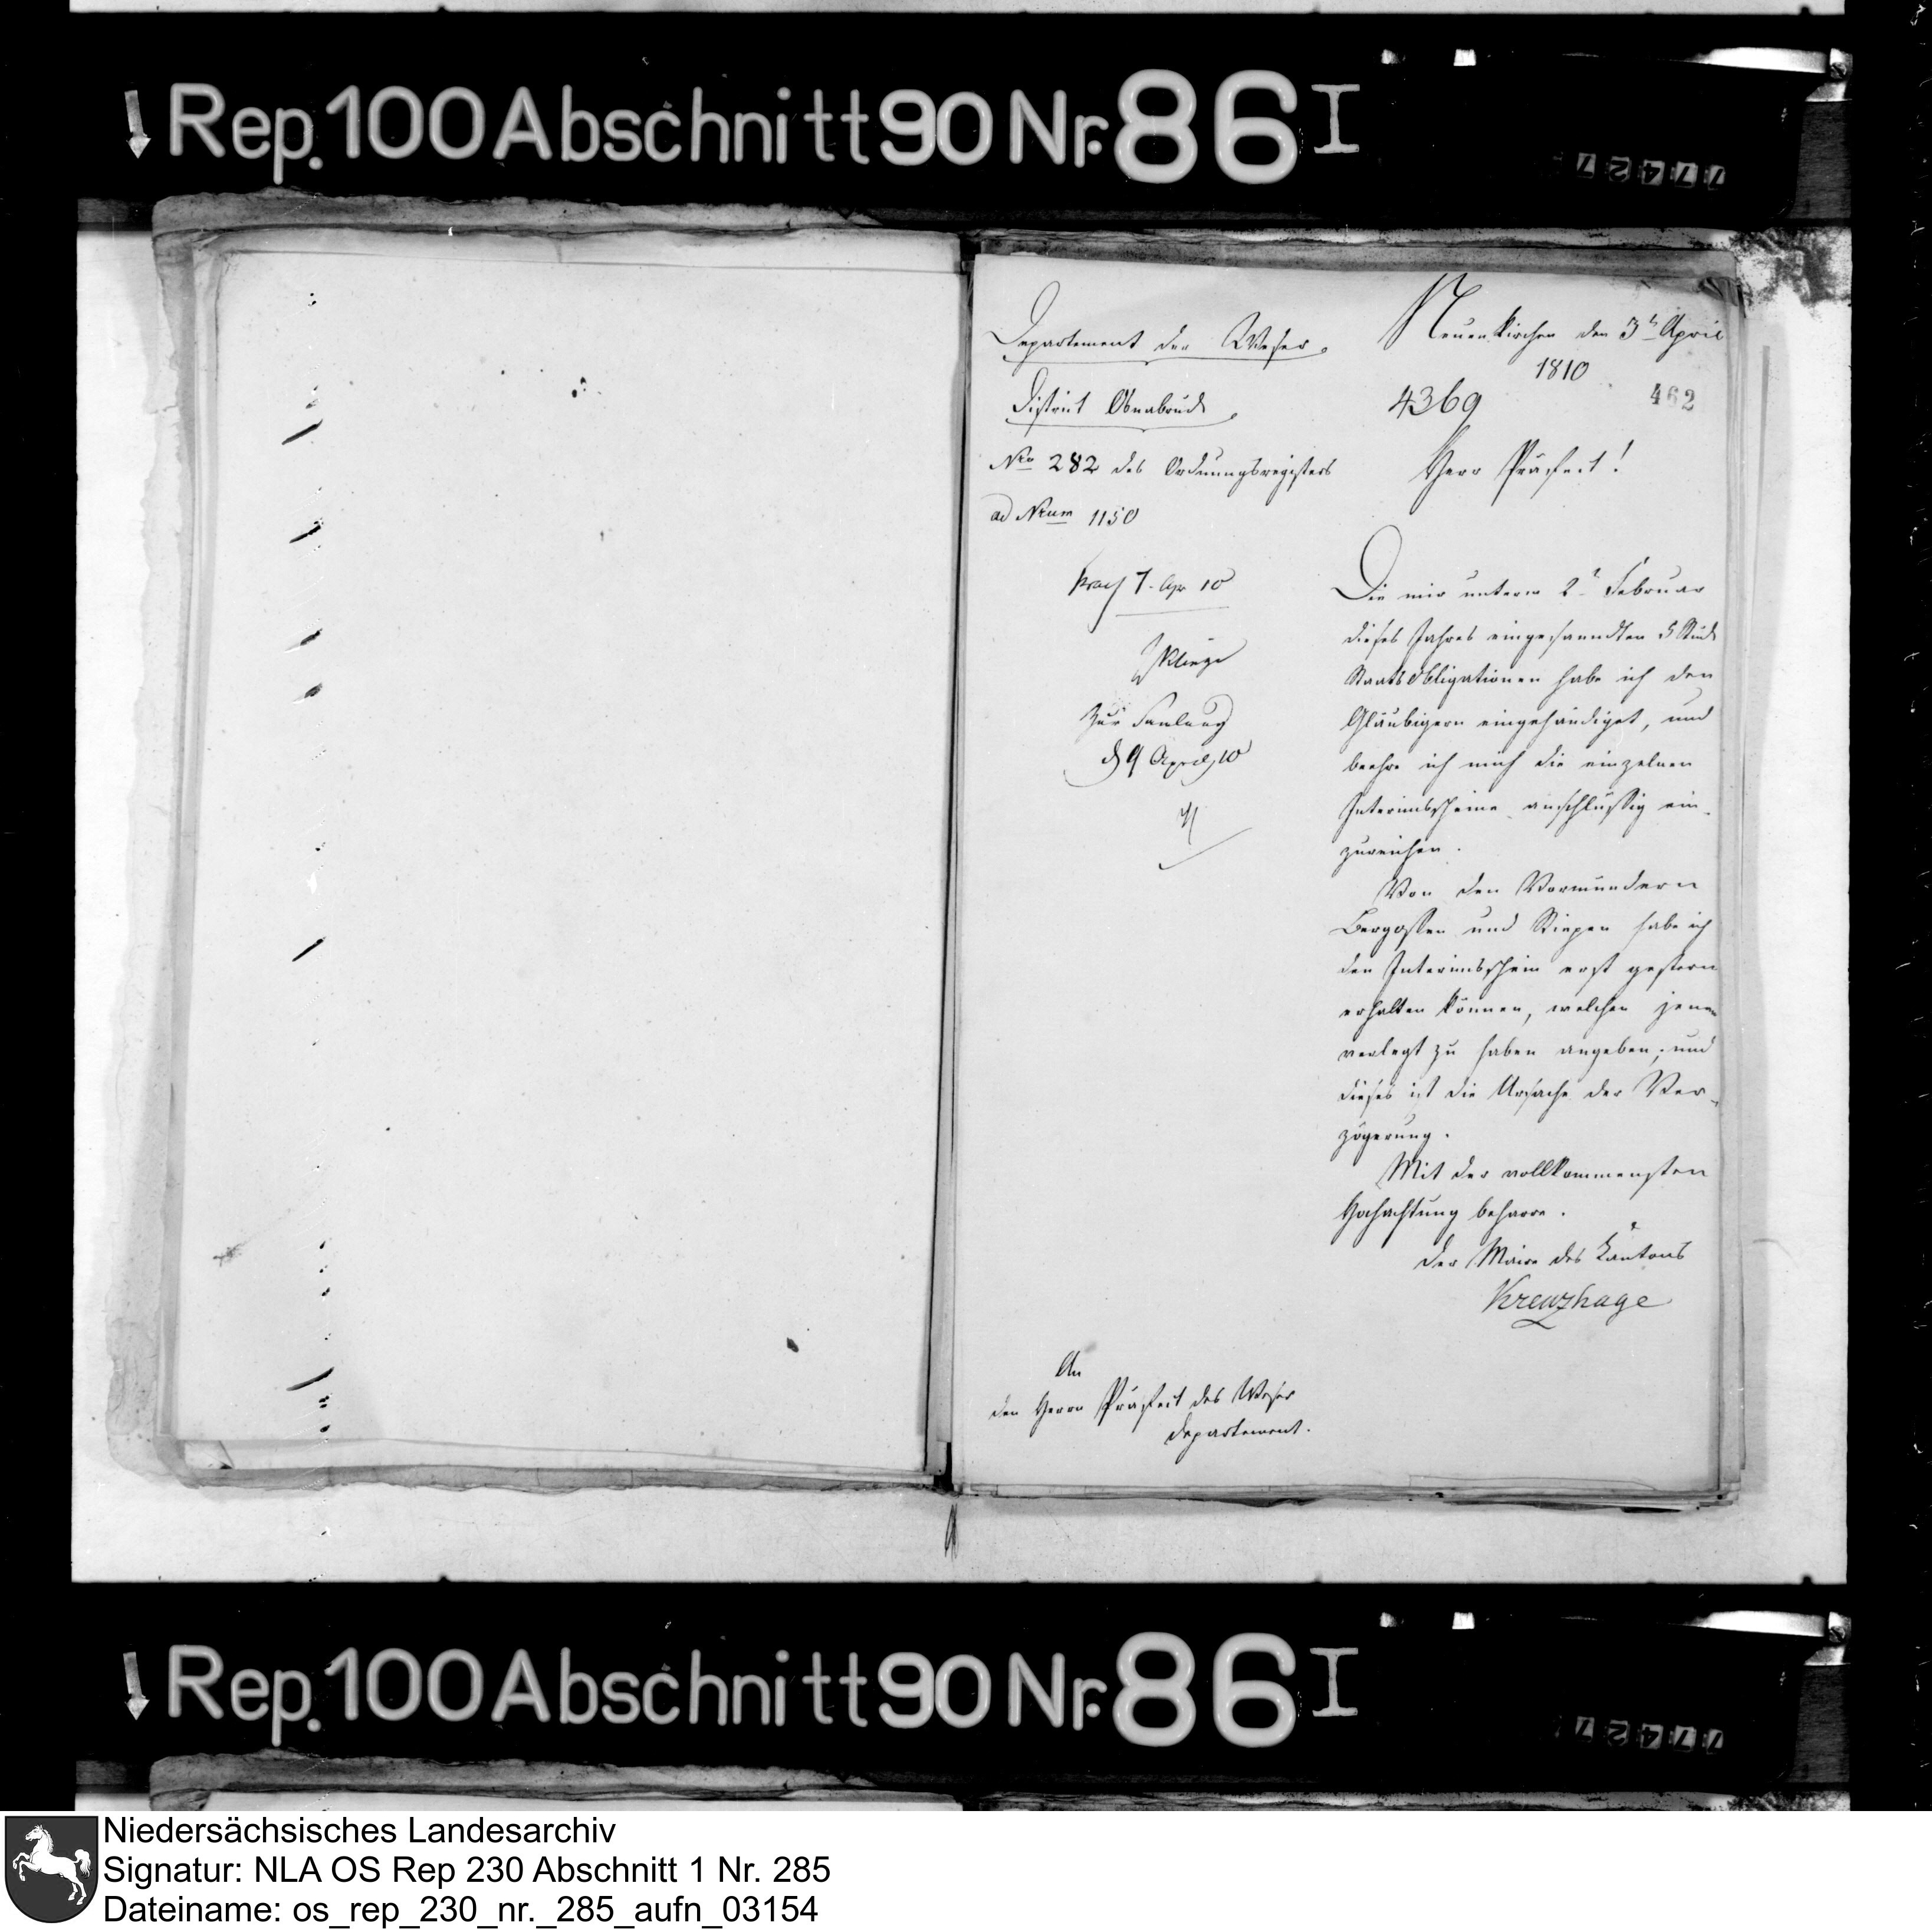 Rep. 100 Abschnitt 90 Nr. 86 I
77427
Departement der Weser.
District Osnabruck.
Nro 282 des Ordnungsregisters
ad Num 1150
Neuenkirchen den 3t April
1810
4369
462
Herr Präfect!
praes 7. Apr 10
Zur Samlung
d 9 April 10
Die mir unterm 2t Februar
dieses Jahres eingesanndten 5 Stück
Staatsobligationen habe ich den
Gläubigern eingehändiget, und
beehre ich mich die einzelnen
Interimsscheine anschlüssig ein-
zureichen.
Von den Vormündern
und habe ich
den Interimsschein erst gestern
erhalten können, welchen jene
verlegt zu haben angeben; und
dieses ist die Ursache der Ver-
zögerung.
Mit der vollkommensten
Hochachtung beharre.
Der Maire des Kantons
Kreuzhage
An
den Herrn Präfect des Weser
departement.
Rep. 100 Abschnitt 90 Nr. 86 I
77427
Niedersächsisches Landesarchiv
Signatur: NLA OS Rep 230 Abschnitt 1 Nr. 285
Dateiname: os_rep_230_nr._285_aufn_03154